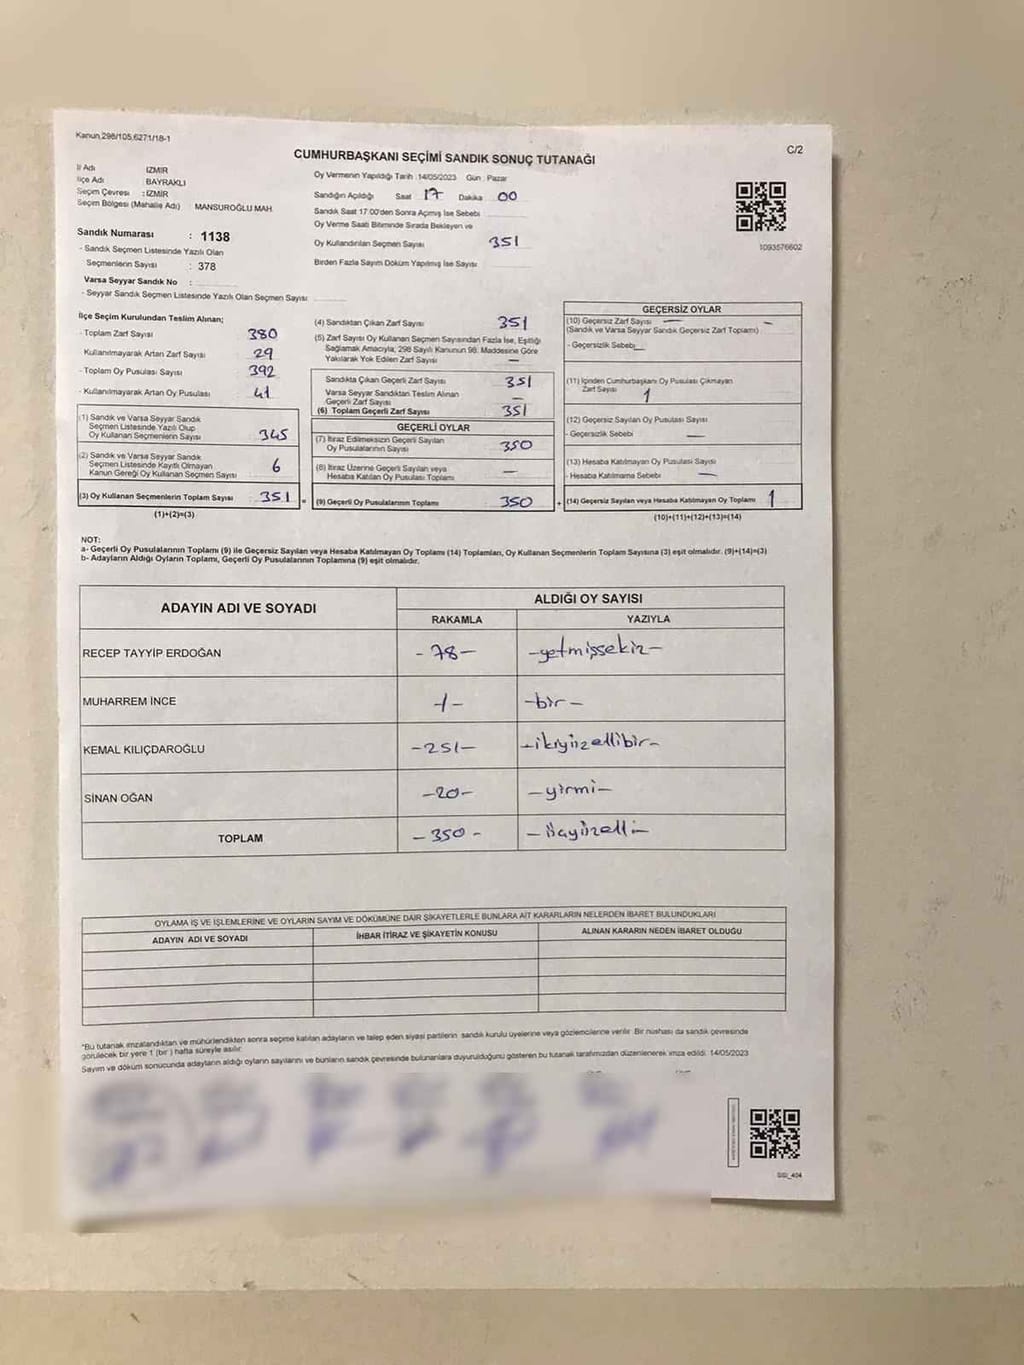 Kanun,298/105,6271/18-1
C/2
CUMHURBAŞKANI SEÇİMİ SANDIK SONUÇ TUTANAĞI
İl Adı İZMİR
İlçe Adı BAYRAKLI
Seçim Çevresi : İZMİR
Seçim Bölgesi (Mahalle Adı) MANSUROĞLU MAH.
Sandık Numarası : 1138
- Sandık Seçmen Listesinde Yazılı Olan
Seçmenlerin Sayısı : 378
Varsa Seyyar Sandık No :
- Seyyar Sandık Seçmen Listesinde Yazılı Olan Seçmen Sayısı
Oy Vermenin Yapıldığı Tarih : 14/05/2023 Gün : Pazar
Sandığın Açıldığı Saat 17 Dakika 00
Sandık Saat 17:00'den Sonra Açımış İse Sebebi
Oy Verme Saati Bitiminde Sırada Bekleyen ve
Oy Kullandırılan Seçmen Sayısı 351
Birden Fazla Sayım Döküm Yapılmış İse Sayısı
1093576602
İlçe Seçim Kurulundan Teslim Alınan;
- Toplam Zarf Sayısı 380
Kullanılmayarak Artan Zarf Sayısı 29
- Toplam Oy Pusulası Sayısı 392
- Kullanılmayarak Artan Oy Pusulası 41
(1) Sandık ve Varsa Seyyar Sandık
Seçmen Listesinde Yazılı Olup
Oy Kullanan Seçmenlerin Sayısı 345
(2) Sandık ve Varsa Seyyar Sandık
Seçmen Listesinde Kayıtlı Olmayan
Kanun Gereği Oy Kullanan Seçmen Sayısı 6
(3) Oy Kullanan Seçmenlerin Toplam Sayısı 351 =
(1)+(2)=(3)
(4) Sandıktan Çıkan Zarf Sayısı 351
(5) Zarf Sayısı Oy Kullanan Seçmen Sayısından Fazla İse, Eşitliği
Sağlamak Amacıyla, 298 Sayılı Kanunun 98. Maddesine Göre
Yakılarak Yok Edilen Zarf Sayısı —
Sandıkta Çıkan Geçerli Zarf Sayısı 351
Varsa Seyyar Sandıktan Teslim Alınan
Geçerli Zarf Sayısı —
(6) Toplam Geçerli Zarf Sayısı 351
GEÇERLİ OYLAR
(7) İtiraz Edilmeksizin Geçerli Sayılan
Oy Pusulalarının Sayısı 350
(8) İtiraz Üzerine Geçerli Sayılan veya
Hesaba Katılan Oy Pusulası Toplamı —
(9) Geçerli Oy Pusulalarının Toplamı 350 +
GEÇERSİZ OYLAR
(10) Geçersiz Zarf Sayısı —
(Sandık ve Varsa Seyyar Sandık Geçersiz Zarf Toplamı) —
- Geçersizlik Sebebi —
(11) İçinden Cumhurbaşkanı Oy Pusulası Çıkmayan
Zarf Sayısı 1
(12) Geçersiz Sayılan Oy Pusulası Sayısı
- Geçersizlik Sebebi —
(13) Hesaba Katılmayan Oy Pusulası Sayısı
- Hesaba Katılmama Sebebi —
(14) Geçersiz Sayılan veya Hesaba Katılmayan Oy Toplamı 1
(10)+(11)+(12)+(13)=(14)
NOT:
a- Geçerli Oy Pusulalarının Toplamı (9) ile Geçersiz Sayılan veya Hesaba Katılmayan Oy Toplamı (14) Toplamları, Oy Kullanan Seçmenlerin Toplam Sayısına (3) eşit olmalıdır. (9)+(14)=(3)
b- Adayların Aldığı Oyların Toplamı, Geçerli Oy Pusulalarının Toplamına (9) eşit olmalıdır.
ADAYIN ADI VE SOYADI ALDIĞI OY SAYISI
RAKAMLA YAZIYLA
RECEP TAYYİP ERDOĞAN - 78 - - yetmişsekiz -
MUHARREM İNCE - 1 - - bir -
KEMAL KILIÇDAROĞLU - 251 - - ikiyüzellibir -
SİNAN OĞAN - 20 - - yirmi -
TOPLAM - 350 - - üçyüzelli -
OYLAMA İŞ VE İŞLEMLERİNE VE OYLARIN SAYIM VE DÖKÜMÜNE DAİR ŞİKAYETLERLE BUNLARA AİT KARARLARIN NELERDEN İBARET BULUNDUKLARI
ADAYIN ADI VE SOYADI İHBAR İTİRAZ VE ŞİKAYETİN KONUSU ALINAN KARARIN NEDEN İBARET OLDUĞU
"Bu tutanak imzalandıktan ve mühürlendikten sonra seçime katılan adayların ve talep eden siyasi partilerin sandık kurulu üyelerine veya gözlemcilerine verilir. Bir nüshası da sandık çevresinde
görülecek bir yere 1 (bir) hafta süreyle asılır.
Sayım ve döküm sonucunda adayların aldığı oyların sayılarını ve bunların sandık çevresinde bulunanlara duyurulduğunu gösteren bu tutanak tarafımızdan düzenlenerek imza edildi. 14/05/2023